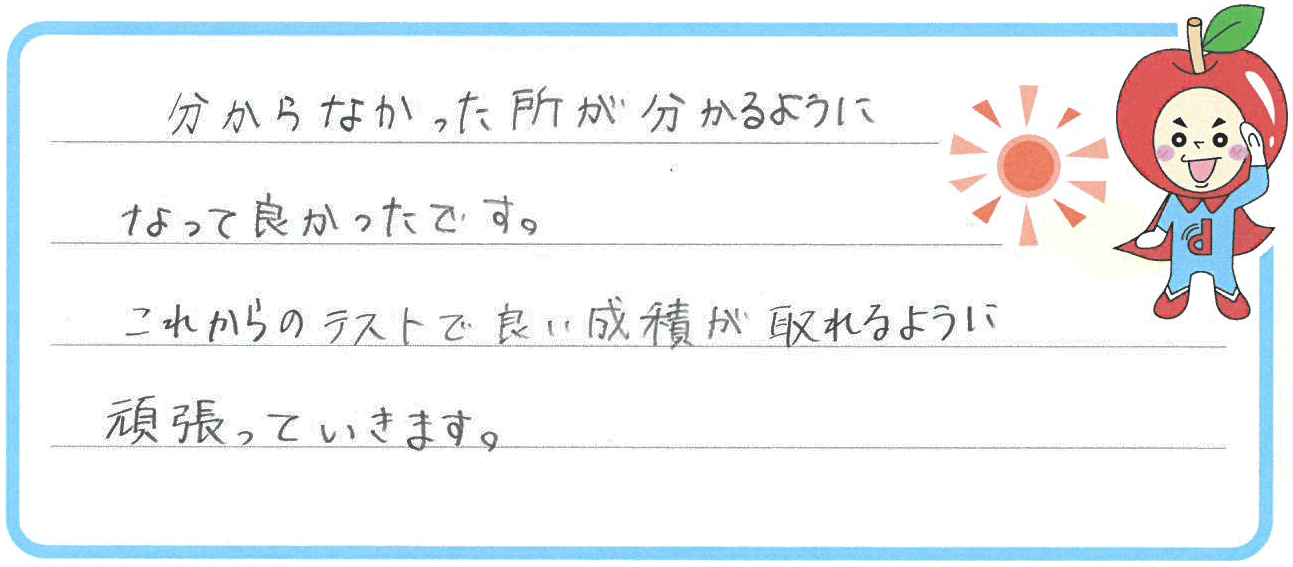 分からなかった所が分かるように
なって良かったです。
これからのテストで良い成積が取れるように
頑張っていきます。